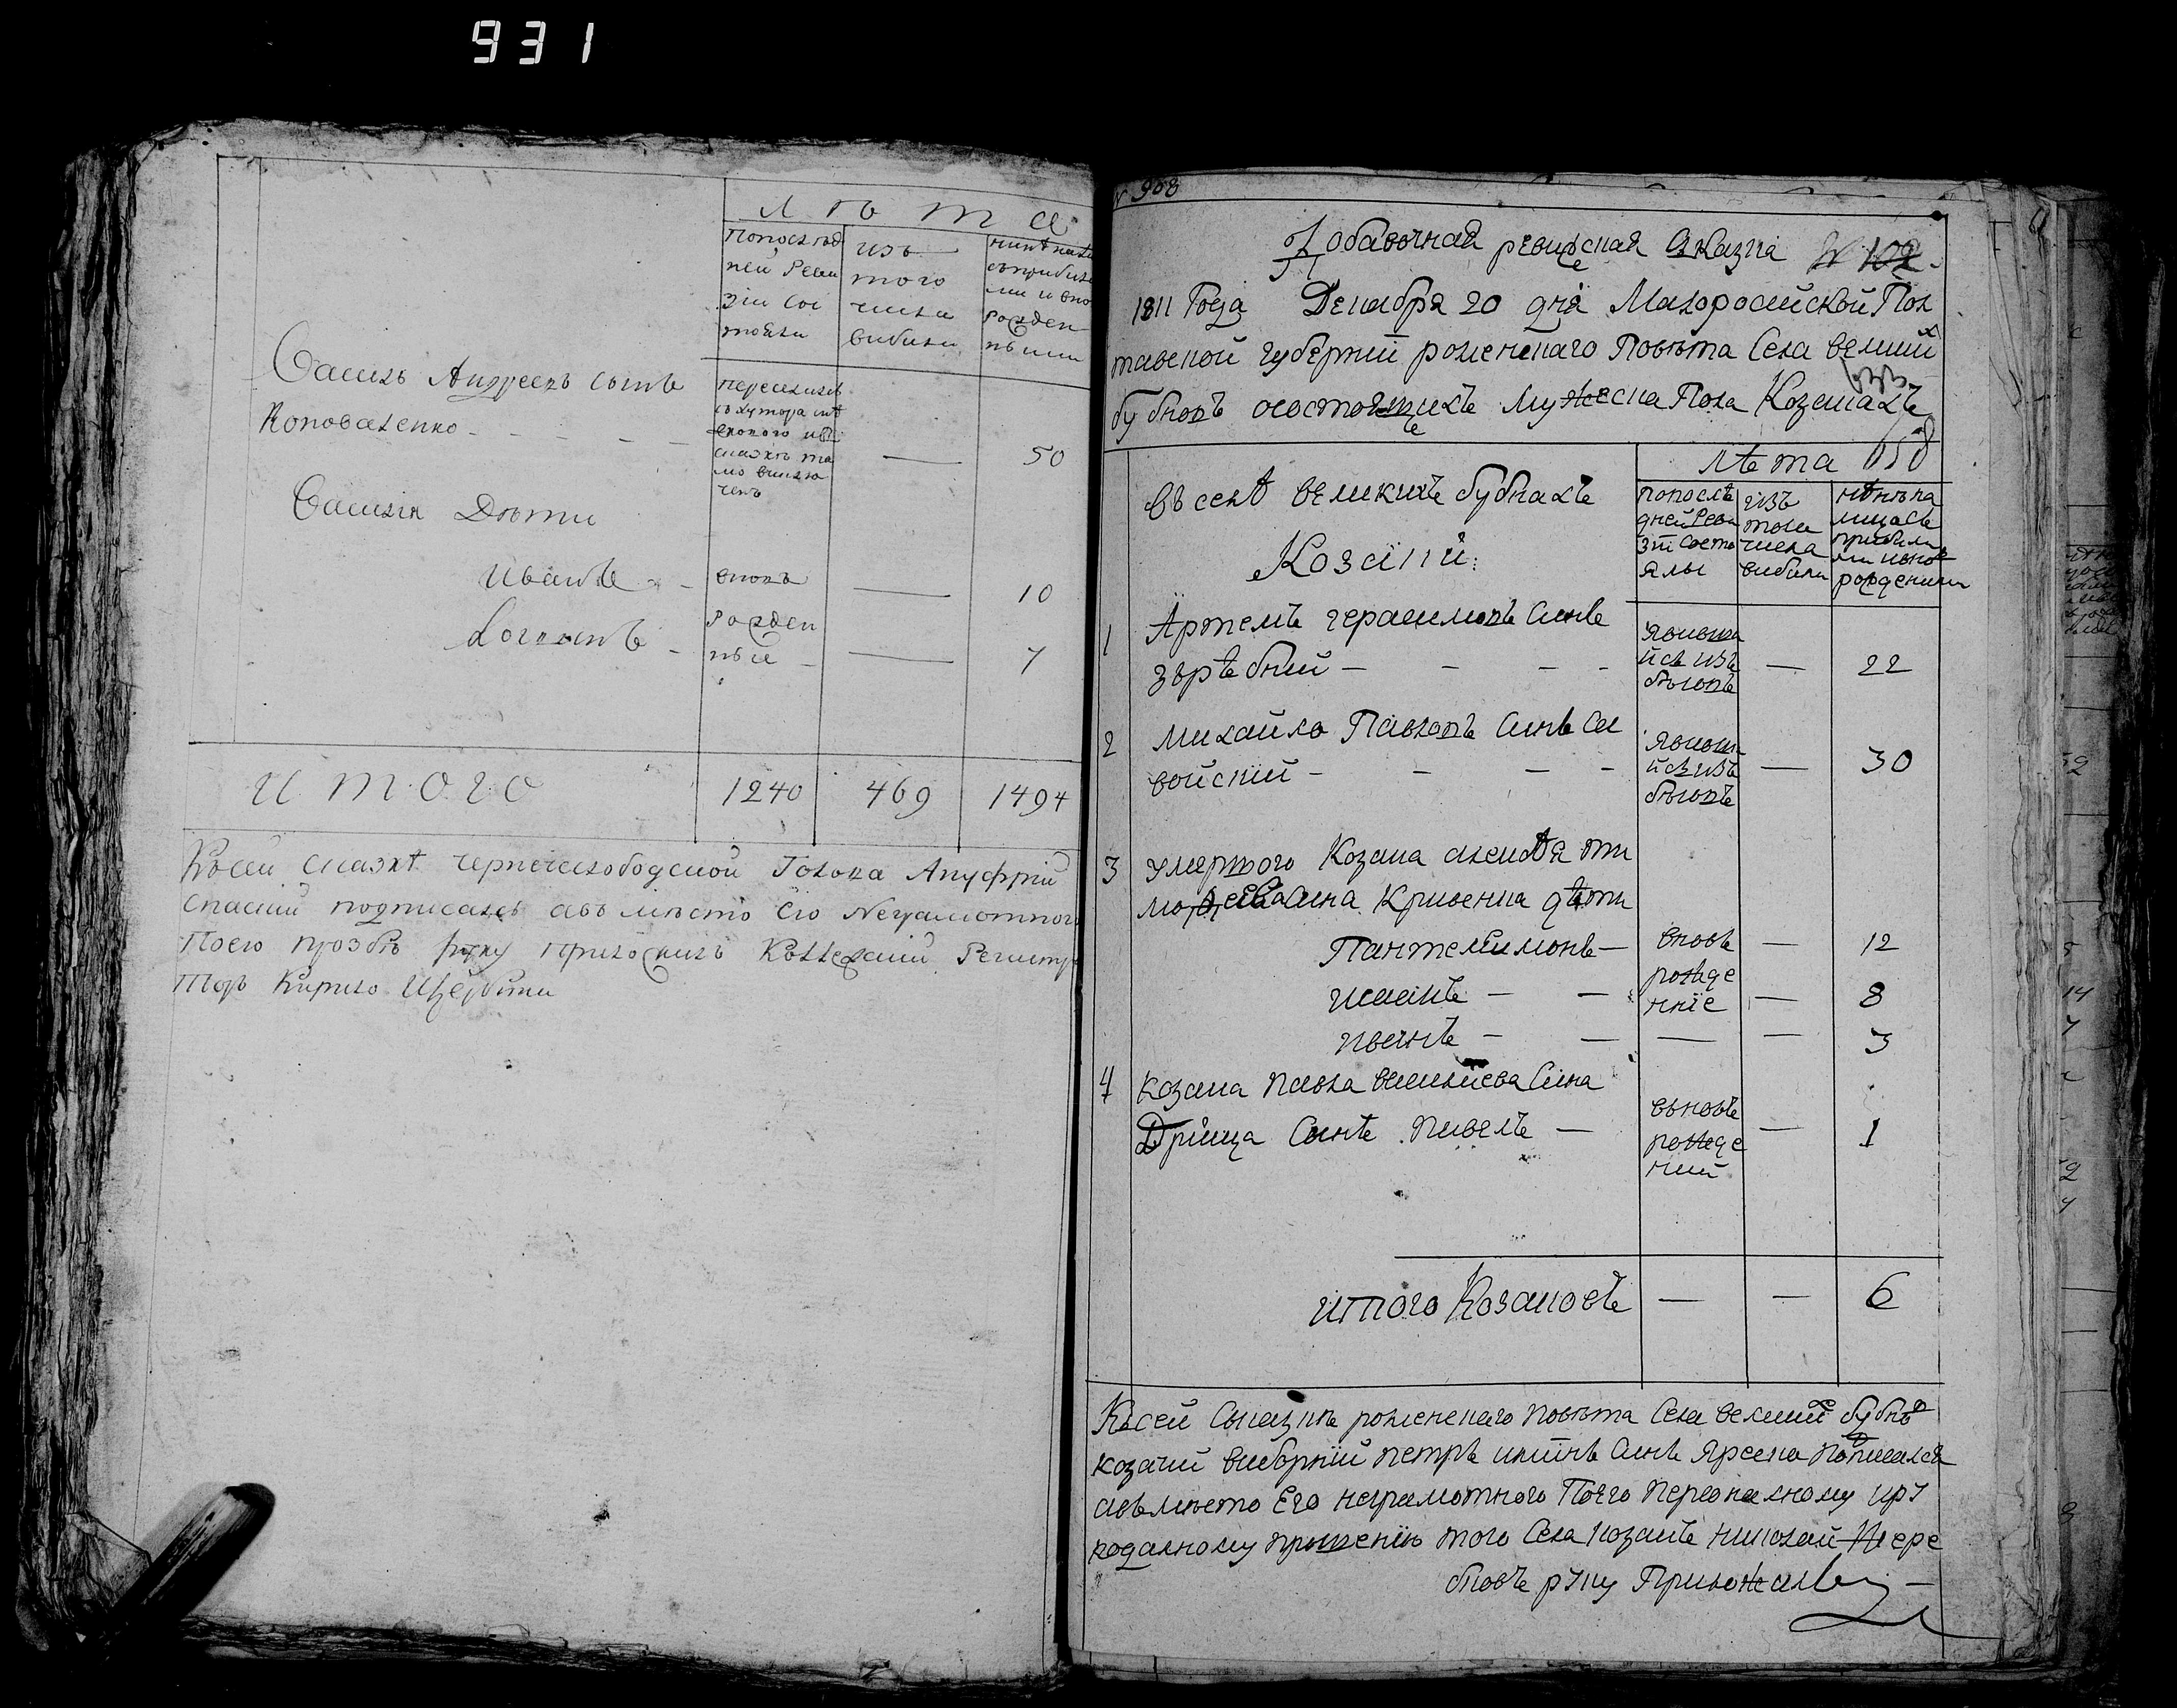 931
Лѣта
Попослѣд из нинѣ налицо
ней Реви того съприбили
зіи сос числа ми и вно
тояли вибили рожден
ными
Василь Андреевъ сынъ
Коноваленко - - - - -
переселился
съ хутора
там
50
Василія Дѣти
Иванъ - - вновь — 10
Логвинъ - рожден
ные - — 7
Итого 1240 469 1494
Ксей сказкѣ чернечеслободской Голова Ануфрій
Спаский подписалсь авъмѣсто Его Неграмотного
Поего прозбѣ руку приложилъ Коллезский Регистра
торъ Кирило Щербина
№ 908
Добавочная ревизская Сказка № 102.
1811 Года Декабря 20 дня Малоросийской Пол
тавской губерний роменского Повѣта Села великих
бубновъ осостоящихъ мужеска Пола Козакахъ
658
Лѣта
въ селѣ великихъ бубнахъ
Козаки:
попослѣ изъ нинѣ на
дней Реви того лицо съ
зіи состо числа прибили
яли вибили ми ивно
рожденими
1 Артемъ герасимовъ Синъ
зърѣбний - - - - явивши
йсь изъ
бѣговъ — 22
2 Михайло Павловъ Синъ Са
войский - - - - явивши
йсь изъ
бѣговъ — 30
3 умершого Козака алексѣя ти
мофеева Сина Кривенка дѣти
Пантелеимонъ — вновь — 12
Исакъ - - рожде
ніе — 8
иванъ - - — — 3
4 Козака Павла василиева Сина
Дрища Синъ павелъ — вновь
рожде
ний — 1
итого Козаковъ — — 6
Ксей Сказкѣ роменского повѣта Села великих бубновъ
козачий виборний петръ Синъ Ярсена подписался
авъмѣсто Его неграмотного Поего персоналному иру
кодалному прошению того Села козакъ николай Жере
бновъ руку Приложилъ